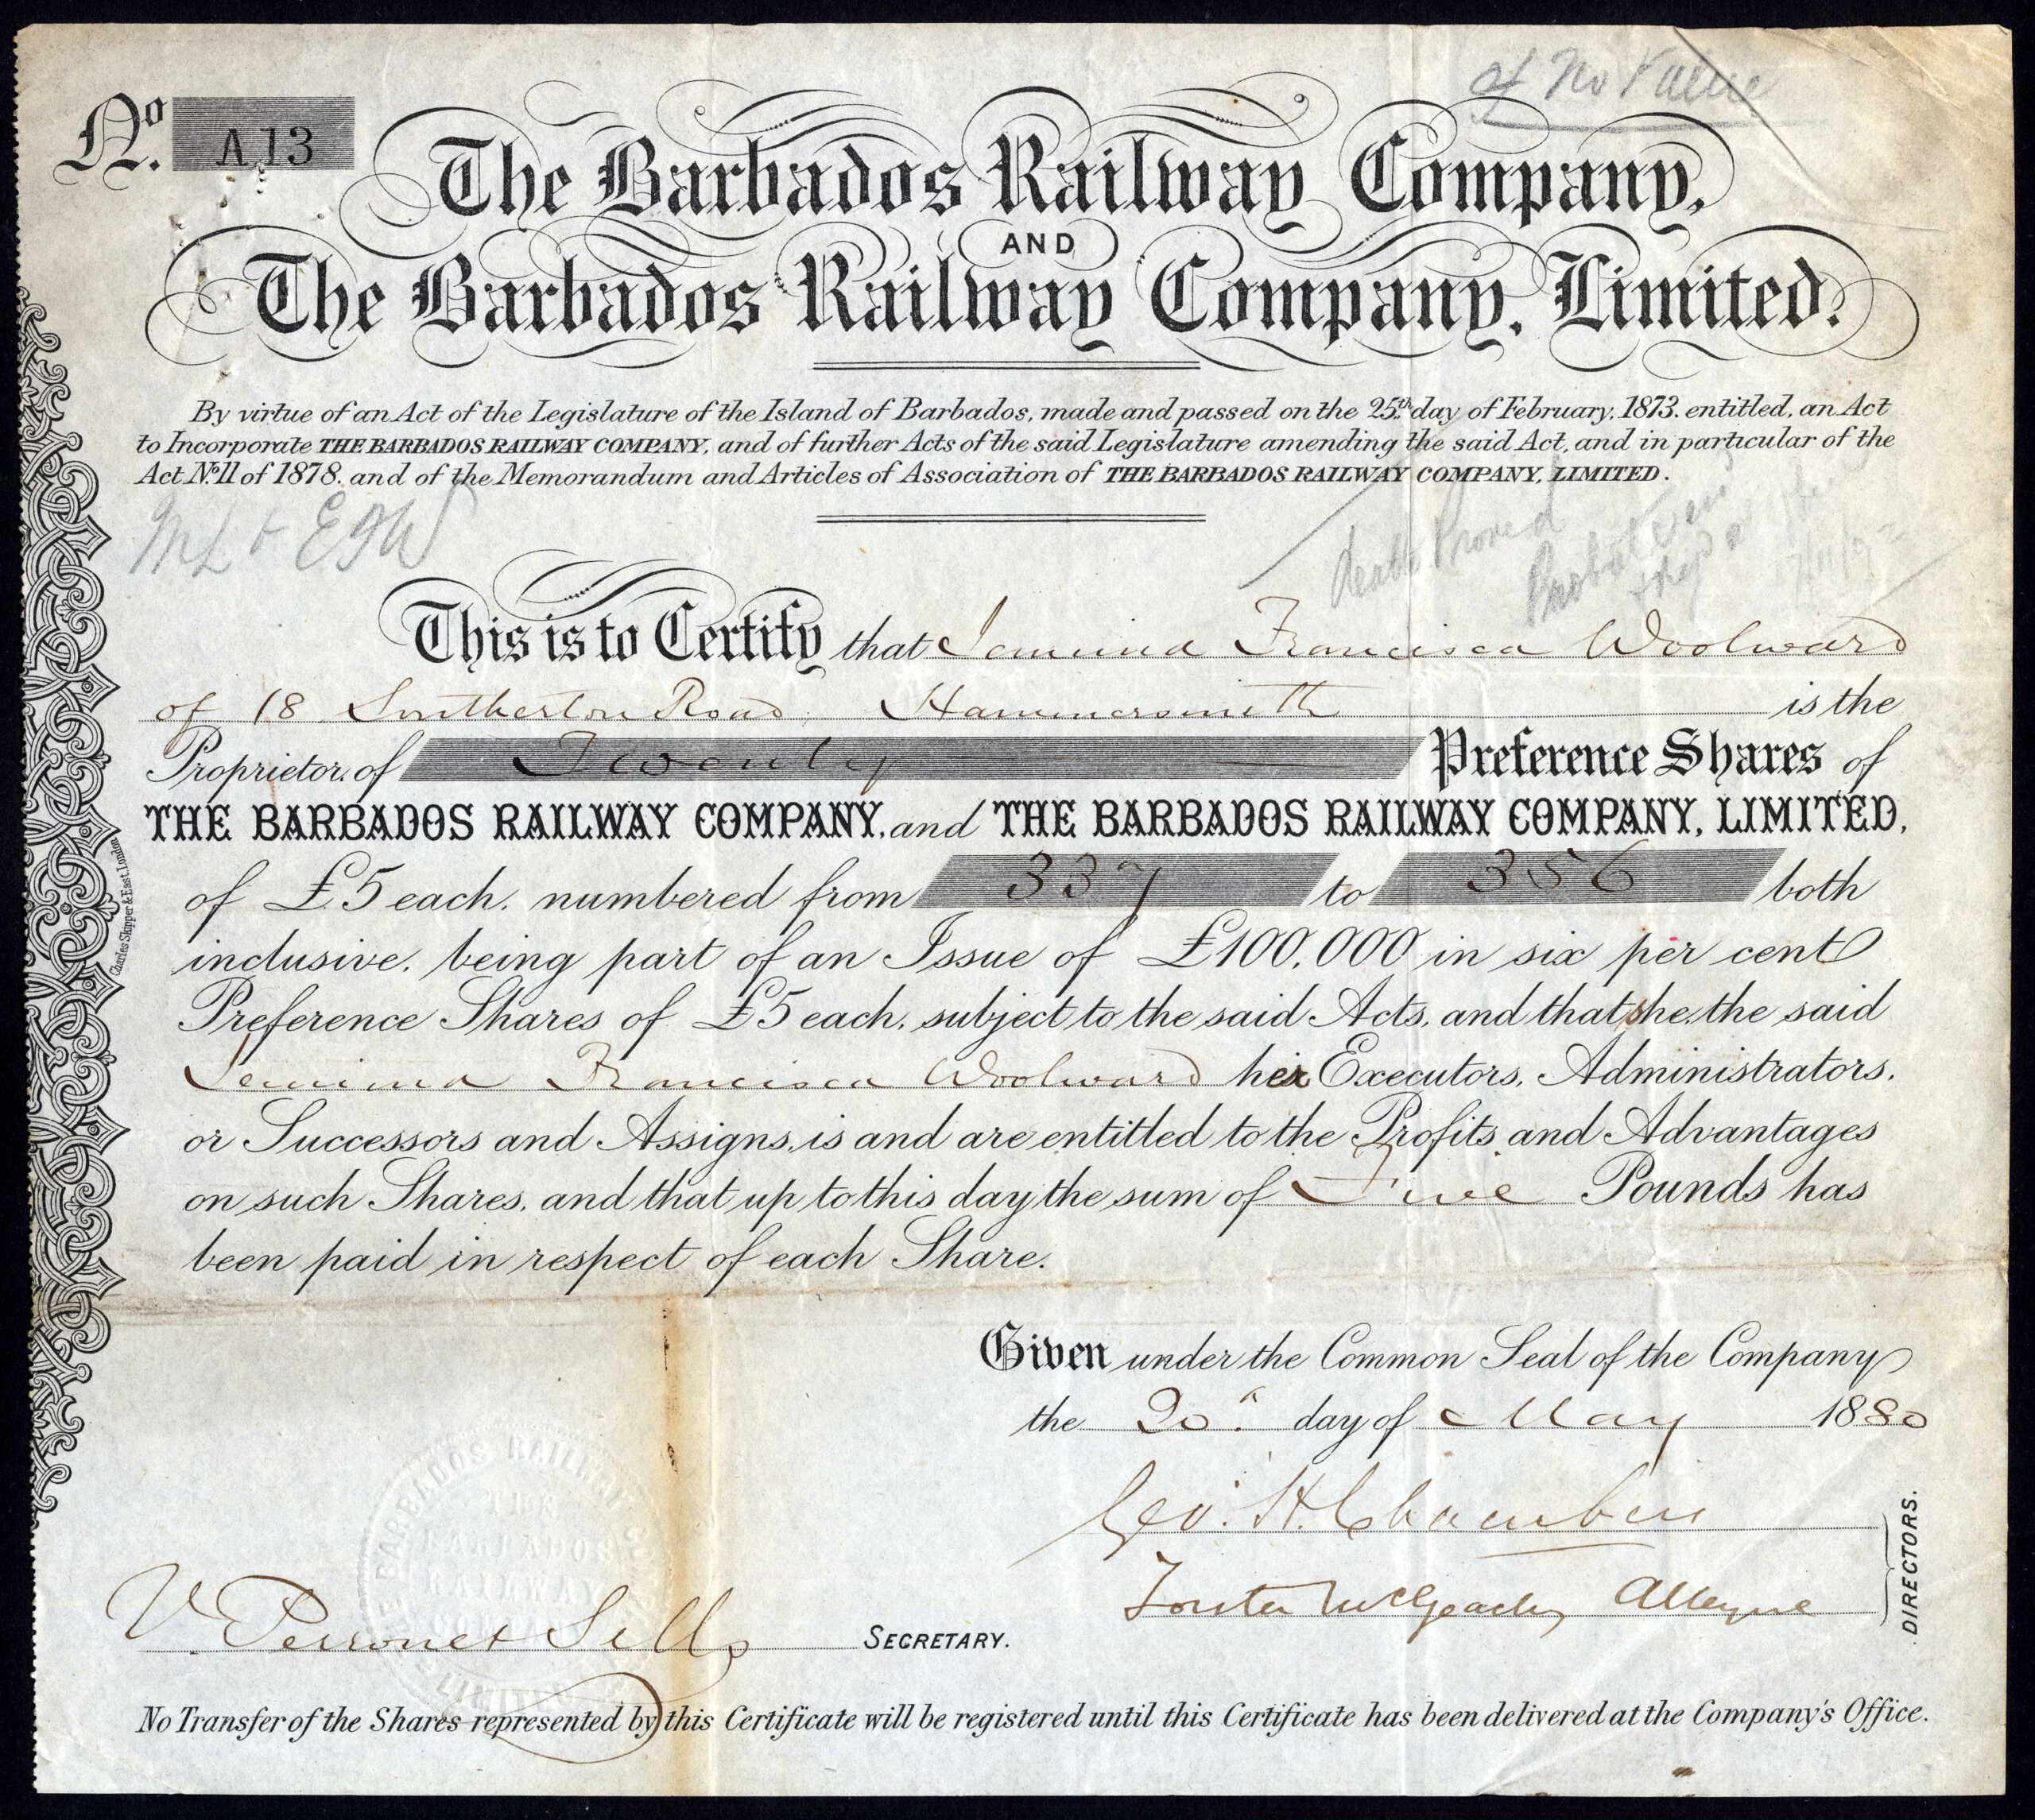 of No Value
No. A 13
The Barbados Railway Company,
AND
The Barbados Railway Company, Limited.
By virtue of an Act of the Legislature of the Island of Barbados, made and passed on the 25th day of February, 1873. entitled, an Act
to Incorporate THE BARBADOS RAILWAY COMPANY, and of further Acts of the said Legislature amending the said Act, and in particular of the
Act No. 11 of 1878. and of the Memorandum and Articles of Association of THE BARBADOS RAILWAY COMPANY, LIMITED.
Death Proved
Probate
This is to Certify that Jemima Francisca Woolward
of 18 Southerton Road Hammersmith is the
Proprietor of Twenty Preference Shares of
THE BARBADOS RAILWAY COMPANY, and THE BARBADOS RAILWAY COMPANY, LIMITED,
Charles Skipper & East. London
of £5 each, numbered from 337 to 356 both
inclusive, being part of an Issue of £100,000 in six per cent
Preference Shares of £5 each, subject to the said Acts, and that she the said
Jemima Francisca Woolward her Executors, Administrators,
or Successors and Assigns, is and are entitled to the Profits and Advantages
on such Shares, and that up to this day the sum of Five Pounds has
been paid in respect of each Share.
Given under the Common Seal of the Company
the 20th day of May 1880
Geo. H. Chambers
Forster McGeachy Alleyne
DIRECTORS.
THE BARBADOS RAILWAY COMPANY LIMITED
THE BARBADOS RAILWAY COMPANY
V Perronet Sells SECRETARY.
No Transfer of the Shares represented by this Certificate will be registered until this Certificate has been delivered at the Company's Office.